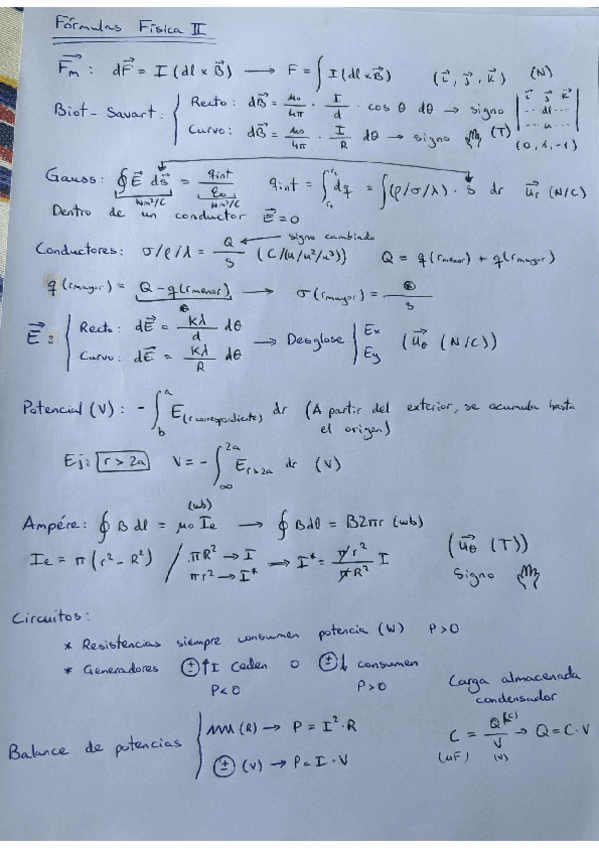 Fórmulas Física II
F⃗m : dF⃗ = I (dl x B⃗) → F = ∫ I (dl x B⃗) (i⃗, j⃗, k⃗) (N)
Biot-Savart: { Recto: dB⃗ = μ0/4π · I/d · cos θ dθ → signo | i⃗ j⃗ k⃗ ··· dl ··· ··· u ··· |
Curvo: dB⃗ = μ0/4π · I/R dθ → signo (T) (0, 1, -1)
Gauss: ∮ E⃗ ds⃗ = qint/ε0 qint = ∫ dq = ∫(ρ/σ/λ) · s dr u⃗r (N/C)
Nm²/C Nm²/C
Dentro de un conductor E⃗ = 0
Conductores: σ/ρ/λ = Q/s ← signo cambiado (C/(u/u²/u³)) Q = q(rmenor) + q(rmayor)
q(rmayor) = Q - q(rmenor) → σ(rmayor) = ⊖/s
E⃗ : { Recto: dE⃗ = kλ/d dθ
Curvo: dE⃗ = kλ/R dθ → Desglose | Ex Ey (u⃗θ (N/C))
Potencial (V): - ∫_b^a E(r correspondiente) dr (A partir del exterior, se acumula hasta
el origen)
Ej: r > 2a V = - ∫_∞^2a E r>2a dr (V)
(wb)
Ampére: ∮ B dl = μ0 Ie → ∮ B dl = B2πr (wb)
Ie = π (r² - R²) / πR² → I πr² → I* ⇒ I* = πr²/πR² I (u⃗θ (T))
Signo
Circuitos:
* Resistencias siempre consumen potencia (W) P>0
* Generadores ± ↑ I Ceden o ± ↓ consumen
P<0 P>0
Carga almacenada
condensador
Balance de potencias { (R) → P = I² · R
± (V) → P = I · V
C = Q/V → Q = C · V
(μF) (C) (V)